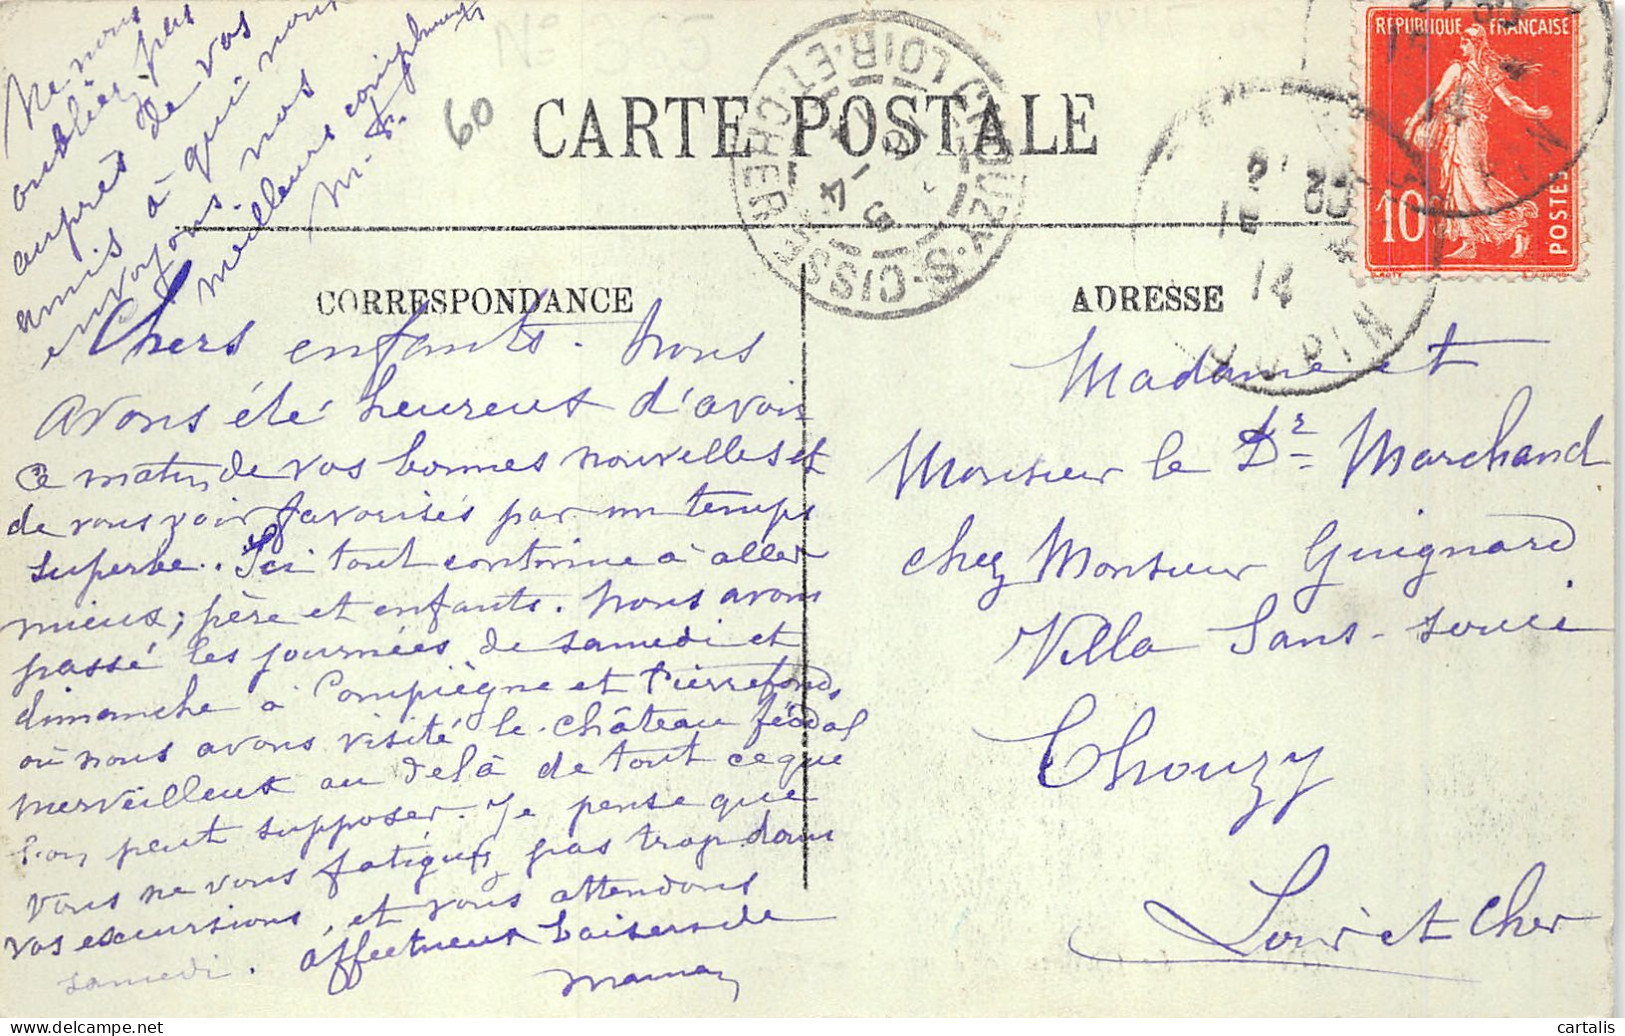 Ne nous
oubliez pas
auprès de vos
amis à qui nous
envoyons nos
meilleurs compliments
M. F.
60
CARTE POSTALE
CHOUZY-S-CISSE
LOIR-ET-CHER
5 - 4
14
21 30
15 4
14
21 30
15 4
14
REPUBLIQUE FRANÇAISE
10
POSTES
CORRESPONDANCE
ADRESSE
Chers enfants. Nous
avons été heureux d'avoir
ce matin de vos bonnes nouvelles et
de vous voir favorisés par un temps
superbe. Ici tout continue à aller
mieux; père et enfants. Nous avons
passé les journées de samedi et
dimanche à Compiègne et Pierrefonds,
où nous avons visité le château féodal
merveilleux au delà de tout ce que
l'on peut supposer. Je pense que
vous ne vous fatiguez pas trop dans
vos excursions, et vous attendons
samedi. Affectueux baisers de
Maman
Madame et
Monsieur le Dr Marchand
chez Monsieur Guignard
Villa Sans-souci
Chouzy
Loir et Cher
cartalis